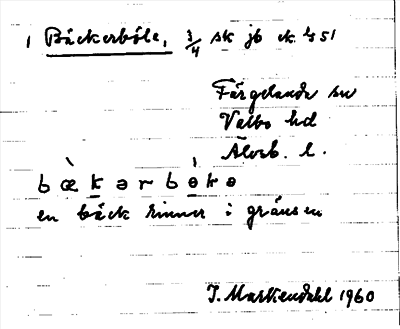 1 Bäckerböle, 3/4 sk jb ek. 4351
Färgelanda sn
Valbo hd
Älvsb. l.
bæ̀kərbɵ́kə
en bäck rinner i gränsen
J. Markendahl 1960